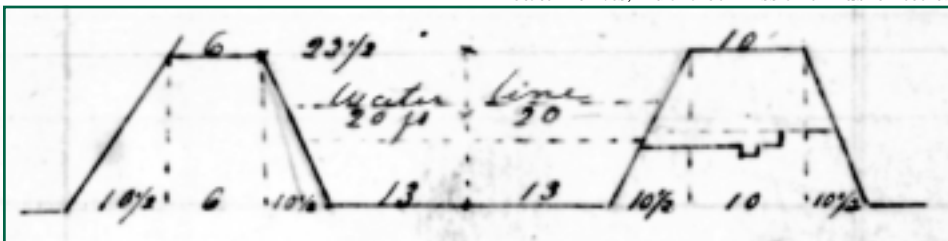 6 23 1/2 10
Water Line
20 ft 20
10 1/2 6 10 1/2 13 13 10 1/2 10 10 1/2